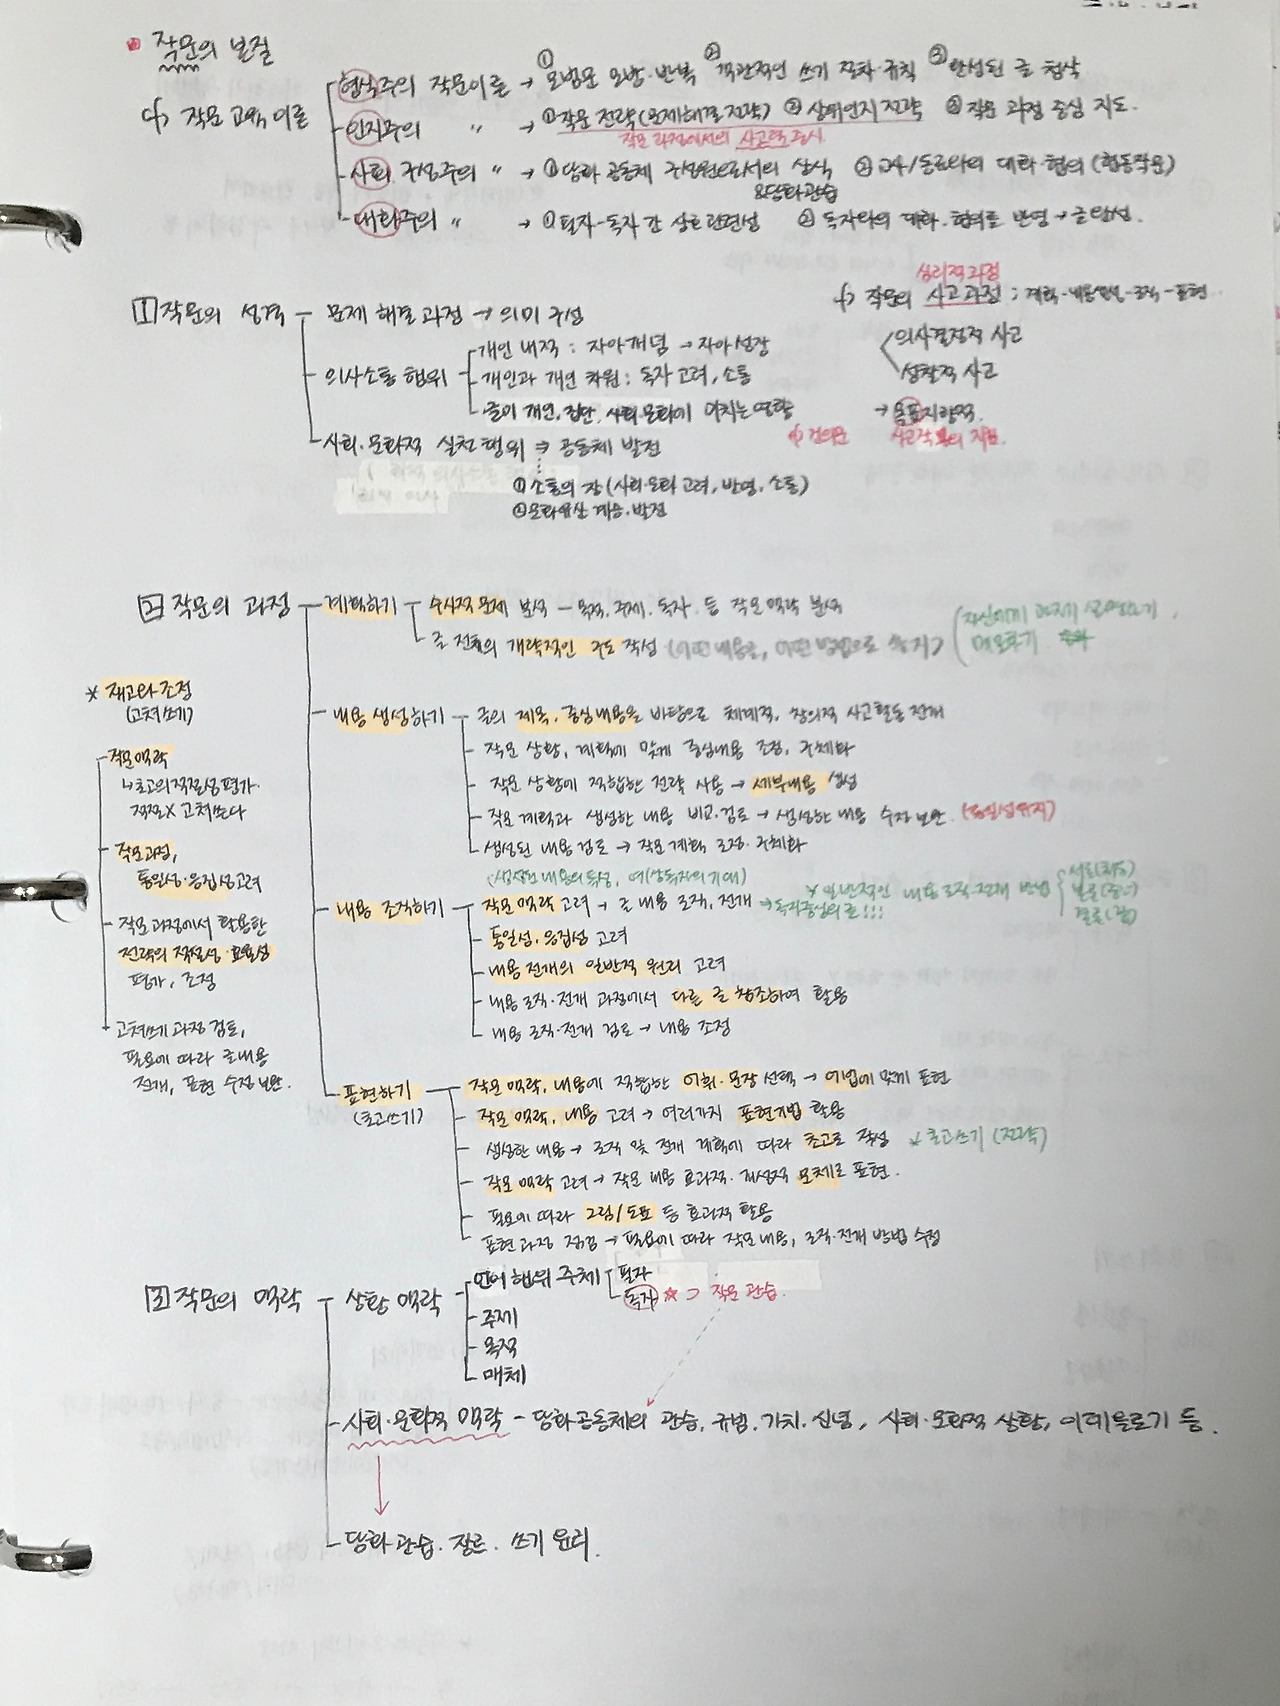 작문의 본질
cf) 작문 교육 이론
형식주의 작문이론 → ① 모범문 모방·반복 ② 객관적인 쓰기 절차·규칙 ③ 완성된 글 첨삭
인지주의 〃 → ① 작문 전략(문제해결 전략) ② 상위인지 전략 ③ 작문 과정 중심 지도.
작문 과정에서의 사고력 중시
사회 구성주의 〃 → ① 담화 공동체 구성원으로서의 상식 ② 교사/동료와의 대화·협의 (협동작문)
&담화관습
대화주의 〃 → ① 필자-독자 간 상호 관련성 ② 독자와의 대화·협의를 반영 → 글 완성.
심리적 과정
cf) 작문의 사고 과정 : 계획-내용생성-조직-표현
의사결정적 사고
성찰적 사고
→ 목표지향적.
cf) 건의문
1 작문의 성격 - 문제 해결 과정 → 의미 구성
의사소통 행위
개인 내적 : 자아개념 → 자아성장
개인과 개인 차원 : 독자 고려, 소통
글이 개인, 집단, 사회·문화에 미치는 영향
사회·문화적 실천 행위 ⇒ 공동체 발전
① 소통의 장 (사회·문화 고려, 반영, 소통)
② 문화유산 계승·발전
2 작문의 과정
계획하기
수사적 문제 분석 - 목적, 주제, 독자 등 작문 맥락 분석
글 전체의 개략적인 구도 작성 (어떤 내용을, 어떤 방법으로 쓸지)
자신에게 편지 쓰기
메모하기
내용 생성하기
글의 제목, 중심내용을 바탕으로 체계적, 창의적 사고활동 전개
작문 상황, 계획에 맞게 중심내용 조정, 구체화
작문 상황에 적합한 전략 사용 → 세부내용 생성
작문 계획과 생성한 내용 비교·검토 → 생성한 내용 수정·보완. (통일성 유지)
생성된 내용 검토 → 작문 계획 조정·구체화
(생성된 내용의 특성, 예상독자의 기대)
내용 조직하기
작문 맥락 고려 → 글 내용 조직, 전개 → 독자중심의 글!!!
* 일반적인 내용 조직·전개 방법
서론(처음)
본론(중간)
결론(끝)
통일성, 응집성 고려
내용 전개의 일반적 원리 고려
내용 조직·전개 과정에서 다른 글 참조하여 활용
내용 조직·전개 검토 → 내용 조정
표현하기
(초고쓰기)
작문 맥락, 내용에 적합한 어휘·문장 선택 → 어법에 맞게 표현
작문 맥락, 내용 고려 → 여러가지 표현기법 활용
생성한 내용 → 조직 및 전개 계획에 따라 초고로 작성 * 초고쓰기 (전략)
작문 맥락 고려 → 작문 내용 효과적·개성적 문체로 표현.
필요에 따라 그림/도표 등 효과적 활용
표현 과정 점검 → 필요에 따라 작문 내용, 조직·전개 방법 수정
* 재고와 조정
(고쳐쓰기)
작문 맥락
↳ 초고의 적절성 평가.
적절X 고쳐쓰다
작문과정,
통일성·응집성 고려
작문 과정에서 활용한
전략의 적절성·효율성
평가, 조정
고쳐쓰기 과정 검토,
필요에 따라 글 내용
전개, 표현 수정·보완.
3 작문의 맥락
상황 맥락
언어 행위 주체
필자
독자 ☆ ⊃ 작문 관습.
주제
목적
매체
사회·문화적 맥락 - 담화공동체의 관습, 규범, 가치, 신념, 사회·문화적 상황, 이데올로기 등.
담화 관습. 장르. 쓰기 윤리.